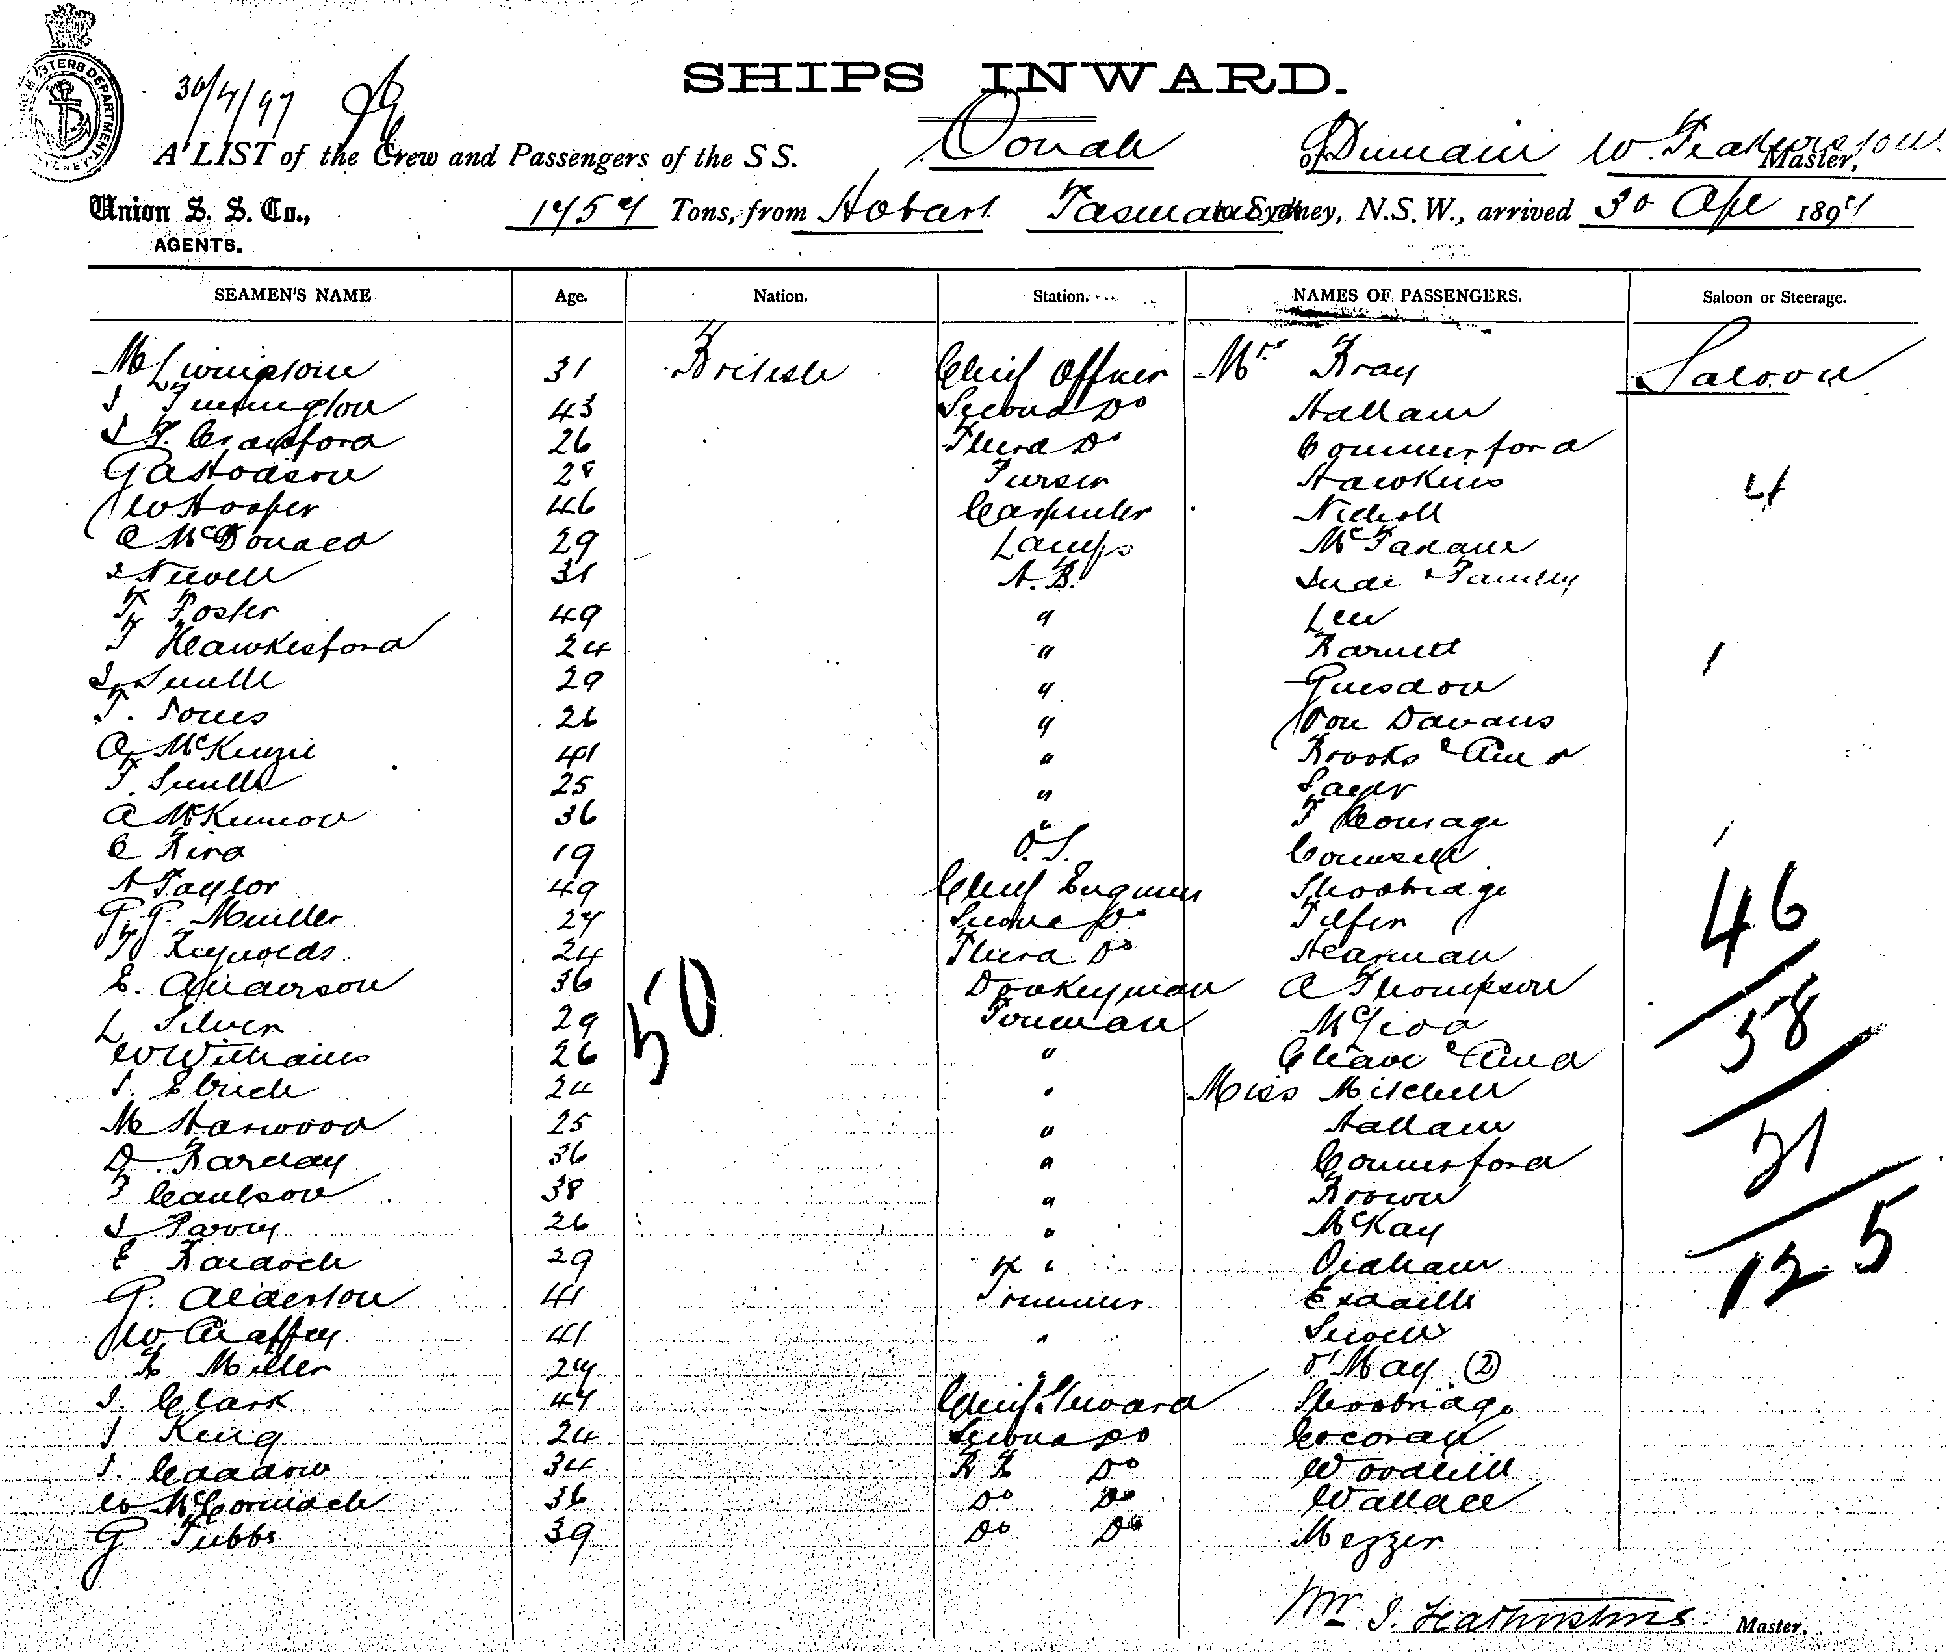 SHIPS INWARD.
30/4/97
A LIST of the Crew and Passengers of the S S. Oonah of Dunedin W. Featherstone Master,
Union S. S. Co., AGENTS. 1757 Tons, from Hobart Tasmania to Sydney, N.S.W., arrived 30 Apl 1897
SEAMEN'S NAME Age. Nation. Station. NAMES OF PASSENGERS. Saloon or Steerage.
M Livingstone 31 British Chief Officer Mrs Bray Saloon
43 Second Do Hallam
J F. Crawford 26 Third Do Commerford
G A Hodson 28 Purser Hawkins 4
W Hooper 46 Carpenter Nicholl
C McDonald 29 Lamps McFarlane
31 A.B. & Family
F Foster 49 " Lee
T Hawkesford 24 " Barnett 1
J. Smith 29 " Guesdon
T. Jones 26 " Von Davans
A McKenzie 41 " Brooks & Amo
T. Smith 25 " Sager
A McKinnon 36 " F Homage
C Bird 19 O.S. Counsell 1
A Taylor 49 Chief Engineer Shoobridge 46
G. G. Mueller 27 Second Do Tilfer
F Reynolds 24 Third Do Hearman
E. Anderson 36 50 Donkeyman A Thompson 58
L Silver 29 Foreman McLeod
W Williams 26 " Cleave & Amo
24 " Miss Mitchell
M Harwood 25 " Hallam 21
D. Barclay 36 " Commerford
F Caulson 38 " Brown
J Parry 26 " McKay
E Bardoch 29 " Oldham 125
G. Alderton 41 Trimmer
W Chaffey 41 "
H Miller 27 " O'May (2)
J. Clark 47 Chief Steward Shoobridge
J King 24 Second Do Corcoran
J. Caddow 34 Do Woodhill
W McCormack 36 Do Do Wallace
G Tubbs 39 Do Do Mezger
Mr J. Featherstone Master.